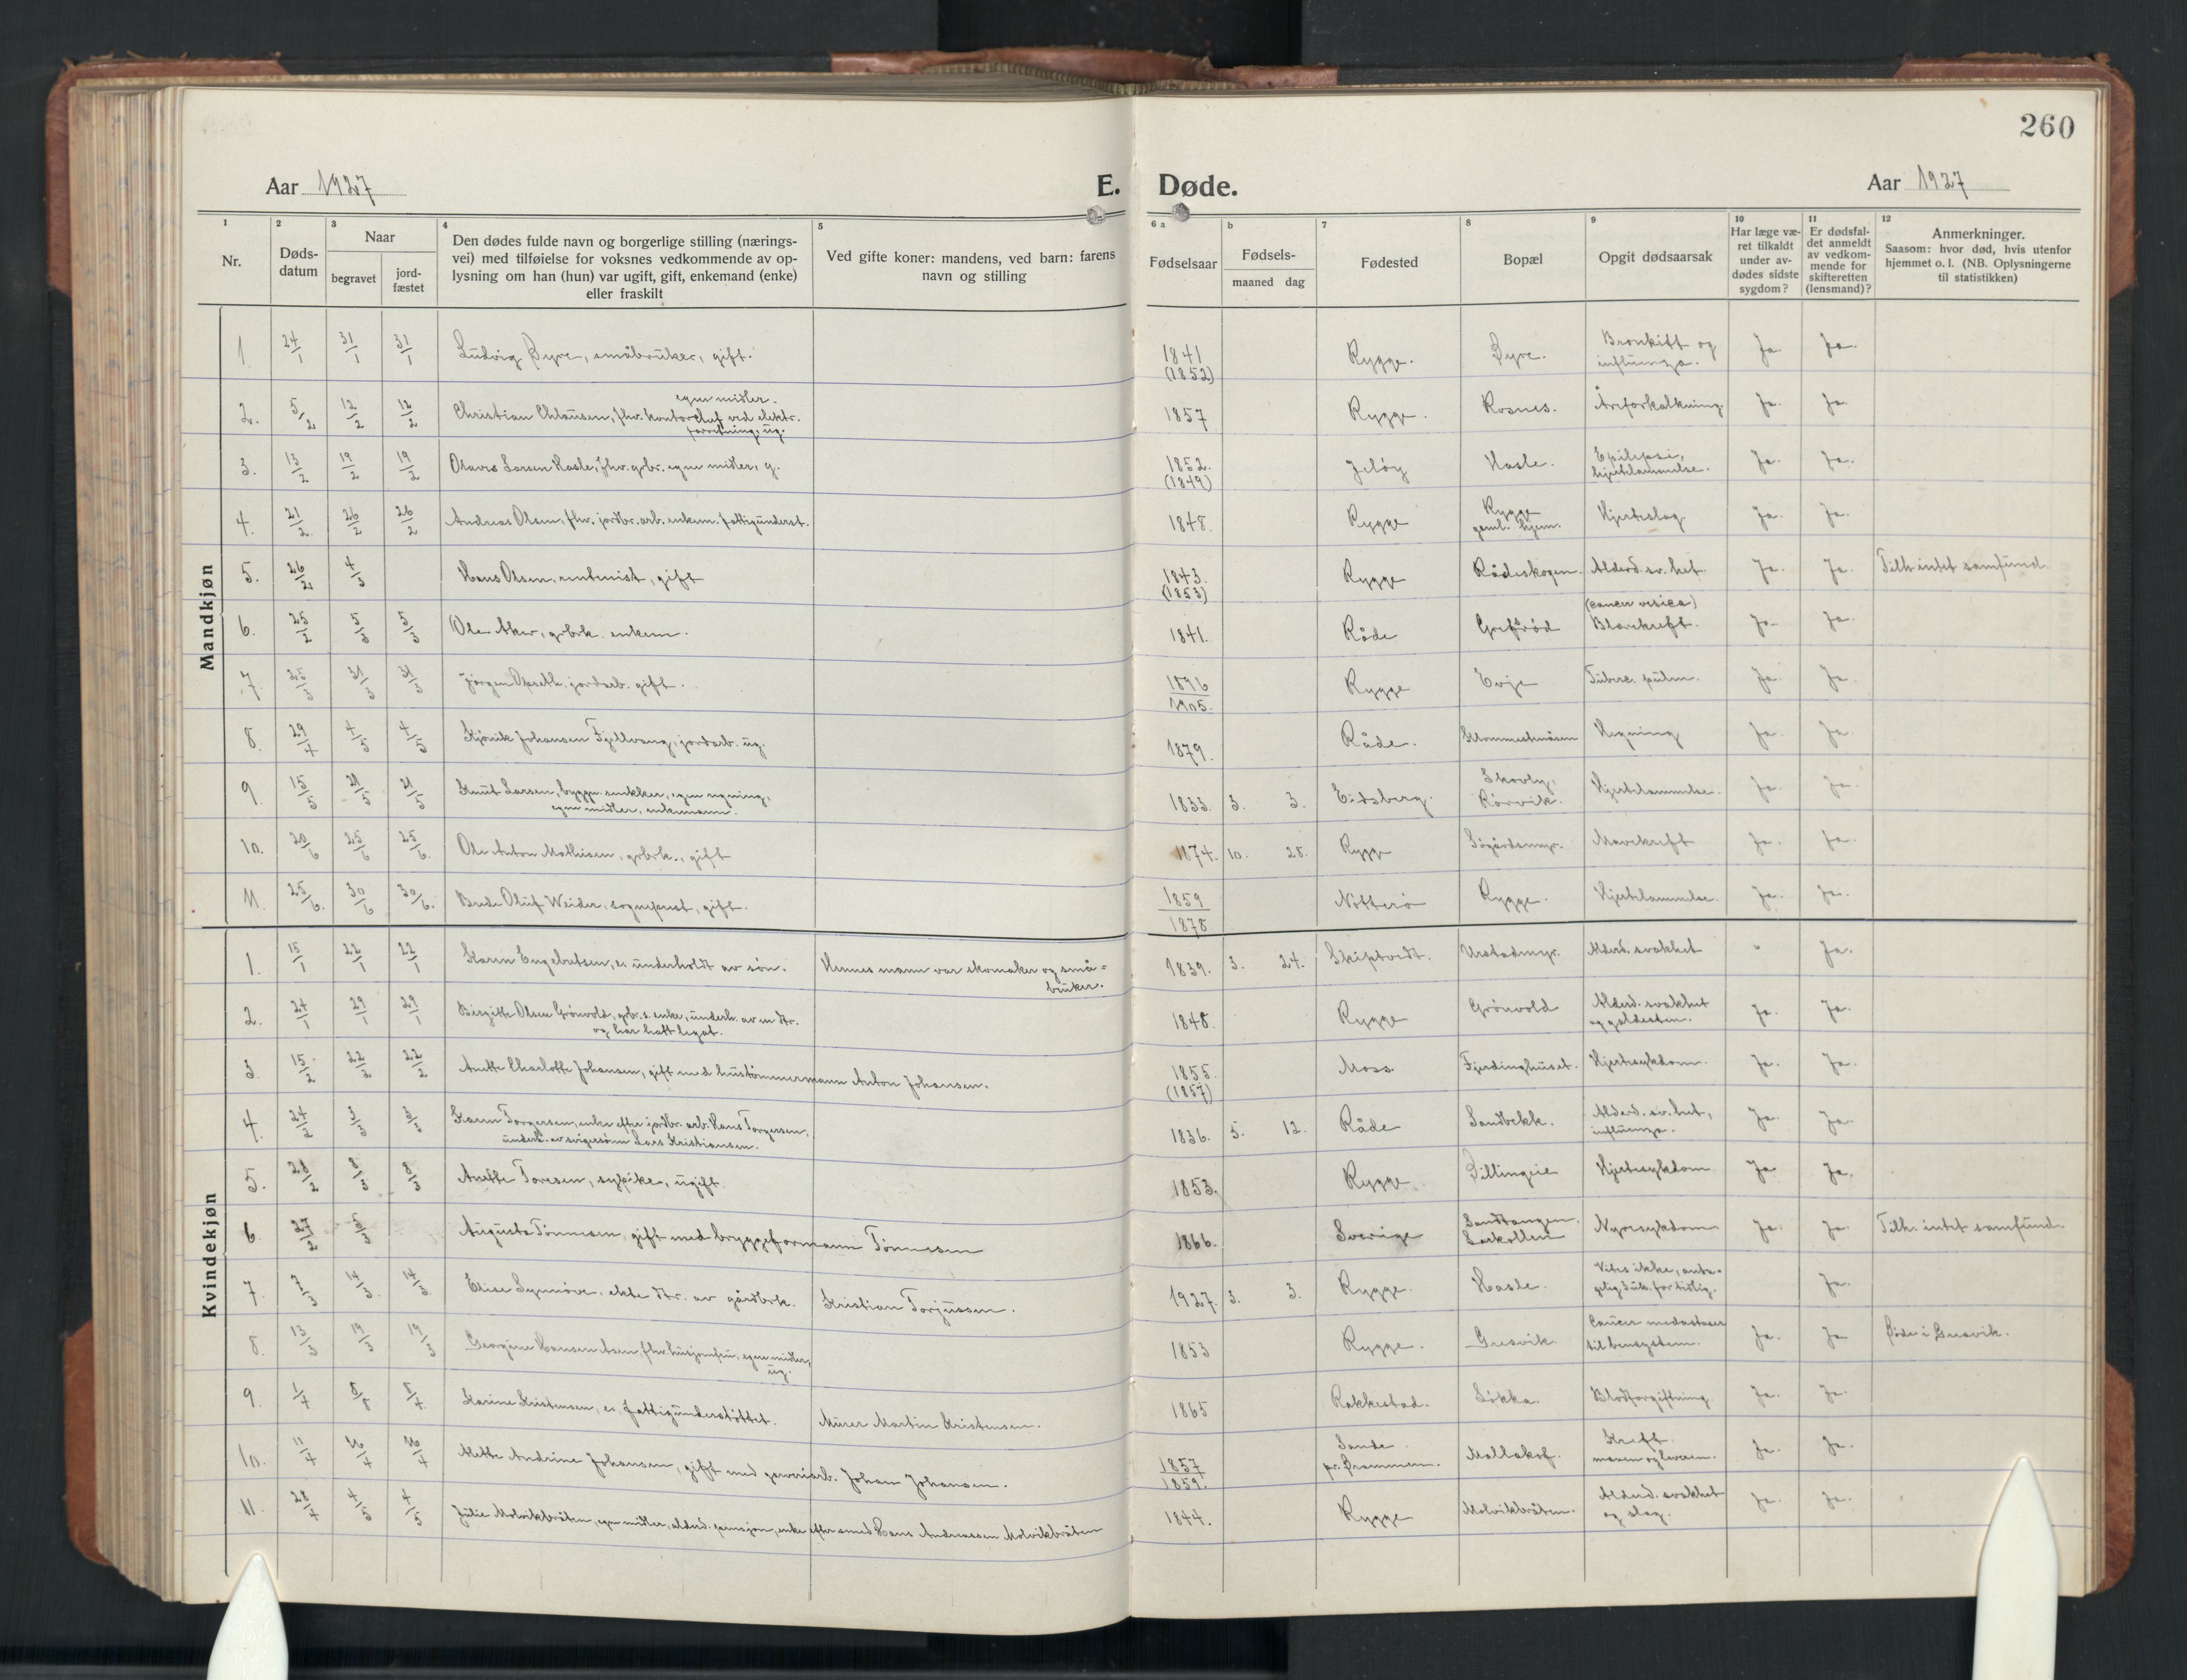 260
Aar 1927 E. Døde. Aar 1927
1 2 3 4 5 6 a b 7 8 9 10 11 12
Nr.
Døds-
datum
Naar
begravet
jord-
fæstet
Den dødes fulde navn og borgerlige stilling (nærings-
vei) med tilføielse for voksnes vedkommende av op-
lysning om han (hun) var ugift, gift, enkemand (enke)
eller fraskilt
Ved gifte koner: mandens, ved barn: farens
navn og stilling
Fødselsaar
Fødsels-
maaned dag
Fødested
Bopæl
Opgit dødsaarsak
Har læge væ-
ret tilkaldt
under av-
dødes sidste
sygdom?
Er dødsfal-
det anmeldt
av vedkom-
mende for
skifteretten
(lensmand)?
Anmerkninger.
Saasom: hvor død, hvis utenfor
hjemmet o. l. (NB. Oplysningerne
til statistikken)
Mandkjøn
1 24/1 31/1 31/1 Ludvig Dyre, småbruker, gift. 1841 (1852) Rygge. Dyre. Bronkitt og
influenza. Ja. Ja.
egne midler.
2. 5/2 12/2 12/2 Christian Clausen, fhv. kontorchef ved elektr.
forretning, ug. 1857 Rygge. Rosnes. Åreforkalkning. Ja. Ja.
3. 13/2 19/2 19/2 Olavus Larsen Hasle, fhv. grbr. egne midler, g. 1852. (1849) Jeløy Hasle. Epilepsi,
hjertelammelse. Ja. Ja.
4. 21/2 26/2 26/2 Andreas Olsen, fhv. jordbr. arb. enkem. fattigunderst. 1848. Rygge Rygge
gaml. hjem. Hjerteslag. Ja. Ja.
5. 26/2 4/3 Hans Olsen, rentenist, gift 1843. (1853) Rygge Rådeskogen. Alderd. sv. het. Ja. Ja. Tilh. intet samfund.
6. 25/2 5/3 5/3 Ole Aker, grbrk. enkem. 1841. Råde Grefsrød (cancer vesica)
Blærekreft. Ja. Ja.
7. 25/3 31/3 31/3 Jørgen Opseth, jordarb. gift. 1896 1905. Rygge Evje Tuberc. pulm. Ja. Ja.
8. 29/4 4/5 4/5 Johansen Fjellvang, jordarb. ug. 1879. Råde. Hengning Ja. Ja.
9 15/5 21/5 21/5 Knut Larsen, byggn. snekker, egen regning,
egne midler, enkemann. 1833. 3. 3. Eidsberg. Skovly,
Rørvik. Hjertelammelse. Ja. Ja.
10. 20/6 25/6 25/6. Ole Anton Mathisen, grbrk., gift 1874. 10. 28. Rygge Søgårdsmyr. Mavekreft Ja. Ja.
11. 25/6. 30/6 30/6. Brede Oluf Weider, sogneprest, gift. 1859 1878 Nøtterø Rygge. Hjertelammelse. Ja. Ja.
Kvindekjøn
1. 15/1 22/1 22/1 Karen Engebretsen, e. underholdt av søn. Hennes mann var skomaker og små-
bruker. 1839. 3. 24. Skiptvedt. Urstadmyr. Alderd. svakhet " Ja.
2. 24/1 29/1 29/1 Birgitte Olsen Grønvold, grbr.s. enke, underh. av en dtr.
og har hatt legat. 1848. Rygge Grønvold Alderd. svakhet
og galdesten. Ja. Ja.
3 15/2 22/2 22/2 Anette Charlotte Johansen, gift med hustømmermann Anton Johansen. 1855. (1857) Moss. Fjerdinghuset. Hjertesykdom. Ja. Ja.
4. 24/2 3/3 3/3 Karen Torgersen, enke efter jordbr. arb. Hans Torgersen,
underh. av svigersønn Lars Kristiansen. 1836. 5. 12. Råde Sandbekk. Alderd. sv. het,
influenza. Ja. Ja.
5. 28/2 8/3 8/3 Anette Toresen, sypike, ugift. 1853. Rygge Dillingeie Hjertesykdom Ja Ja.
6 27/2 5/3 Augusta Tønnesen, gift med bryggeformann Tønnesen 1866. Sverige Sandtangen.
Larkollen Nyresykdom Ja. Ja. Tilh. intet samfund.
7. 7/3 14/3. 14/3 Elise Synnøve, ekte dtr. av gårdbrk. Kristian Torjussen. 1927. 3. 3. Rygge. Hasle. Vites ikke, anta-
gelig for tidlig. Ja.
8. 13/3 19/3 19/3 Georgine Hansen Aven, fhv. husjomfru, egne midler,
ug. 1853 Rygge. Gresvik. Cancer medastaser
til bensystem. Ja. Ja Døde i Gresvik.
9. 1/4 8/4 8/4 Karine Kristensen, e. fattigunderstøttet. Murer Martin Kristensen. 1865 Rakkestad. Løkka. Blodforgiftning. Ja. Ja.
10. 11/4 16/4 16/4 Mette Andrine Johansen, gift med garveriarb. Johan Johansen. 1857 1859. Sande
pr. Drammen. Mallakof. Kreft.
maven og leveren. Ja. Ja.
11. 28/4 4/5 4/5 Julie Molvikbråten, egne midler, alderd. pensjon, enke efter smed Hans Andreassen Molvikbråten 1844. Rygge Molvikbråten. Alderd. svakhet
og slag. Ja. Ja.